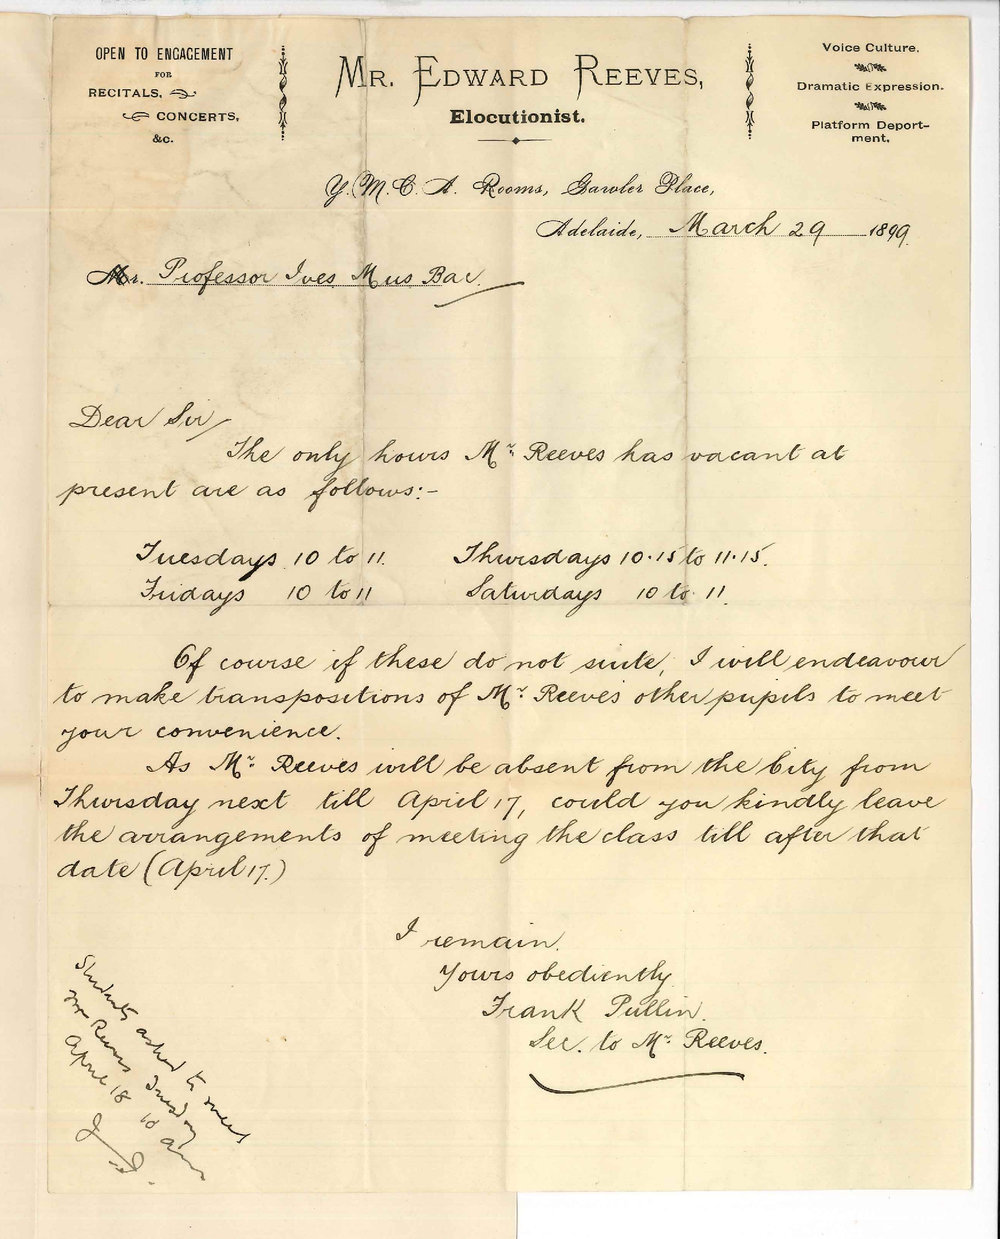 OPEN TO ENGAGEMENT
FOR
RECITALS,
CONCERTS,
&c.
MR. EDWARD REEVES,
Elocutionist.
Voice Culture.
Dramatic Expression.
Platform Deport-
ment.
Y. M. C. A. Rooms, Gawler Place,
Adelaide, March 29 1899
Mr. Professor Ives Mus Bac.
Dear Sir/
The only hours Mr. Reeves has vacant at
present are as follows:-
Tuesdays 10 to 11. Thursdays 10.15 to 11.15.
Fridays 10 to 11 Saturdays 10 to 11.
Of course if these do not suite, I will endeavour
to make transpositions of Mr. Reeves' other pupils to meet
your convenience.
As Mr. Reeves will be absent from the City from
Thursday next till April 17, could you kindly leave
the arrangements of meeting the class till after that
date (April 17.)
I remain.
Yours obediently
Frank Pullin.
Sec. to Mr. Reeves.
Students asked to meet
Mr Reeves Tuesday
April 18 10 am